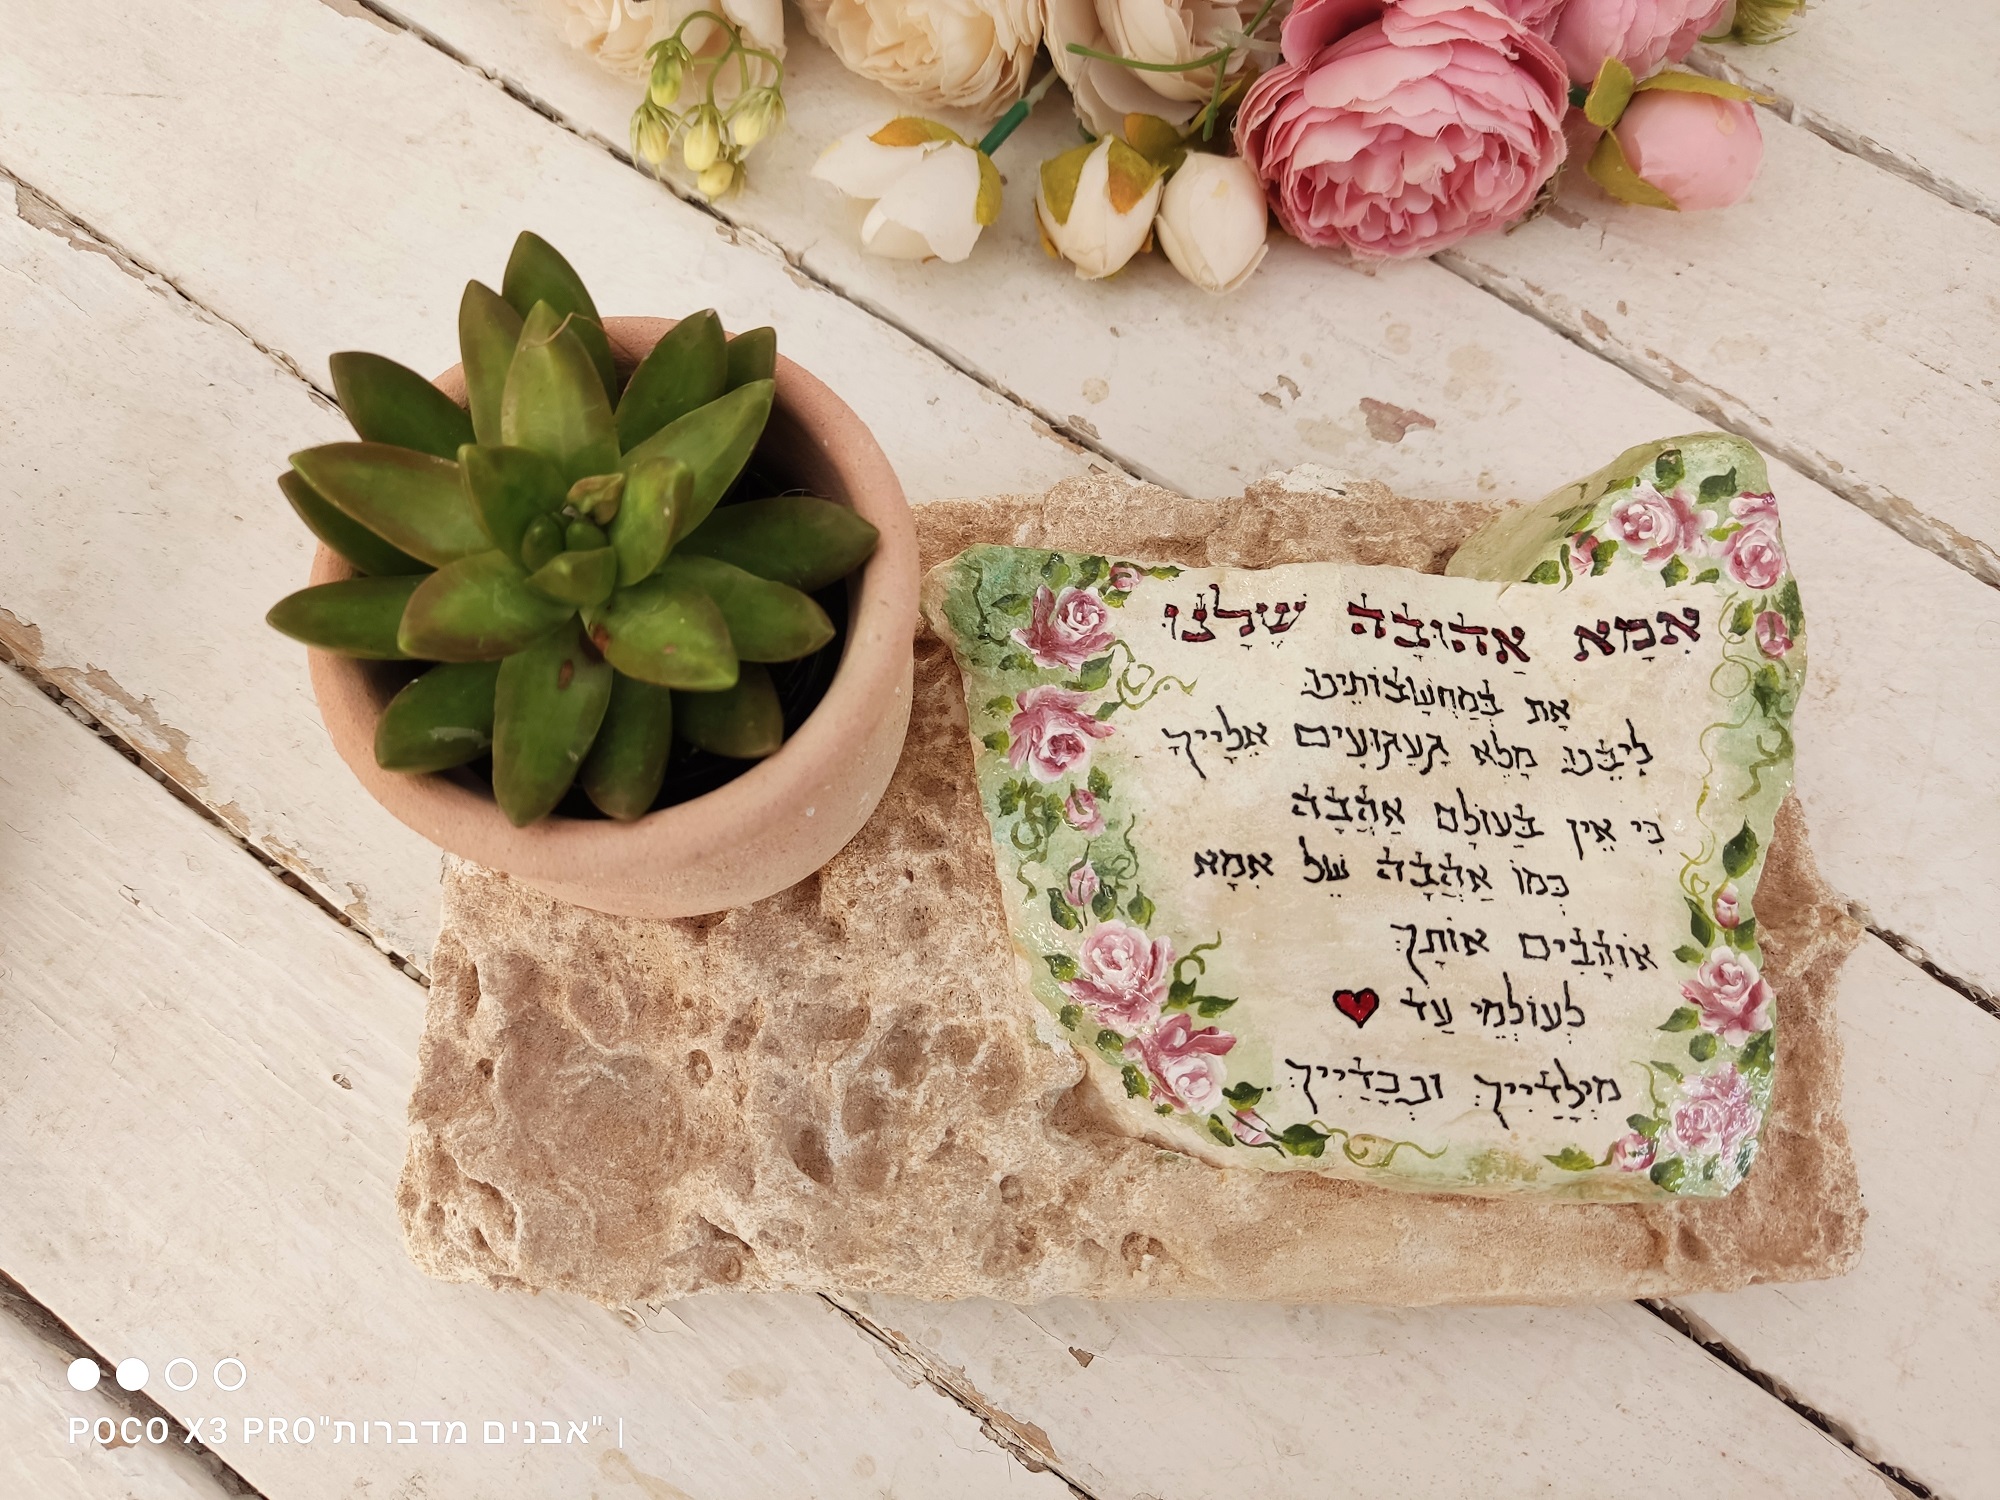 אִמָּא אֲהוּבָה שֶׁלָּנוּ
אַתְּ בְּמַחְשְׁבוֹתֵינוּ
לִיבֵּנוּ מָלֵא גַּעְגּוּעִים אֵלַיִיךְ
כִּי אֵין בָּעוֹלָם אַהֲבָה
כְּמוֹ אַהֲבָה שֶׁל אִמָּא
אוֹהֲבִים אוֹתָךְ
לְעוֹלְמֵי עַד
מִיְּלָדַיִיךְ וּנְכָדַיִיךְ.
POCO X3 PRO"אבנים מדברות" |